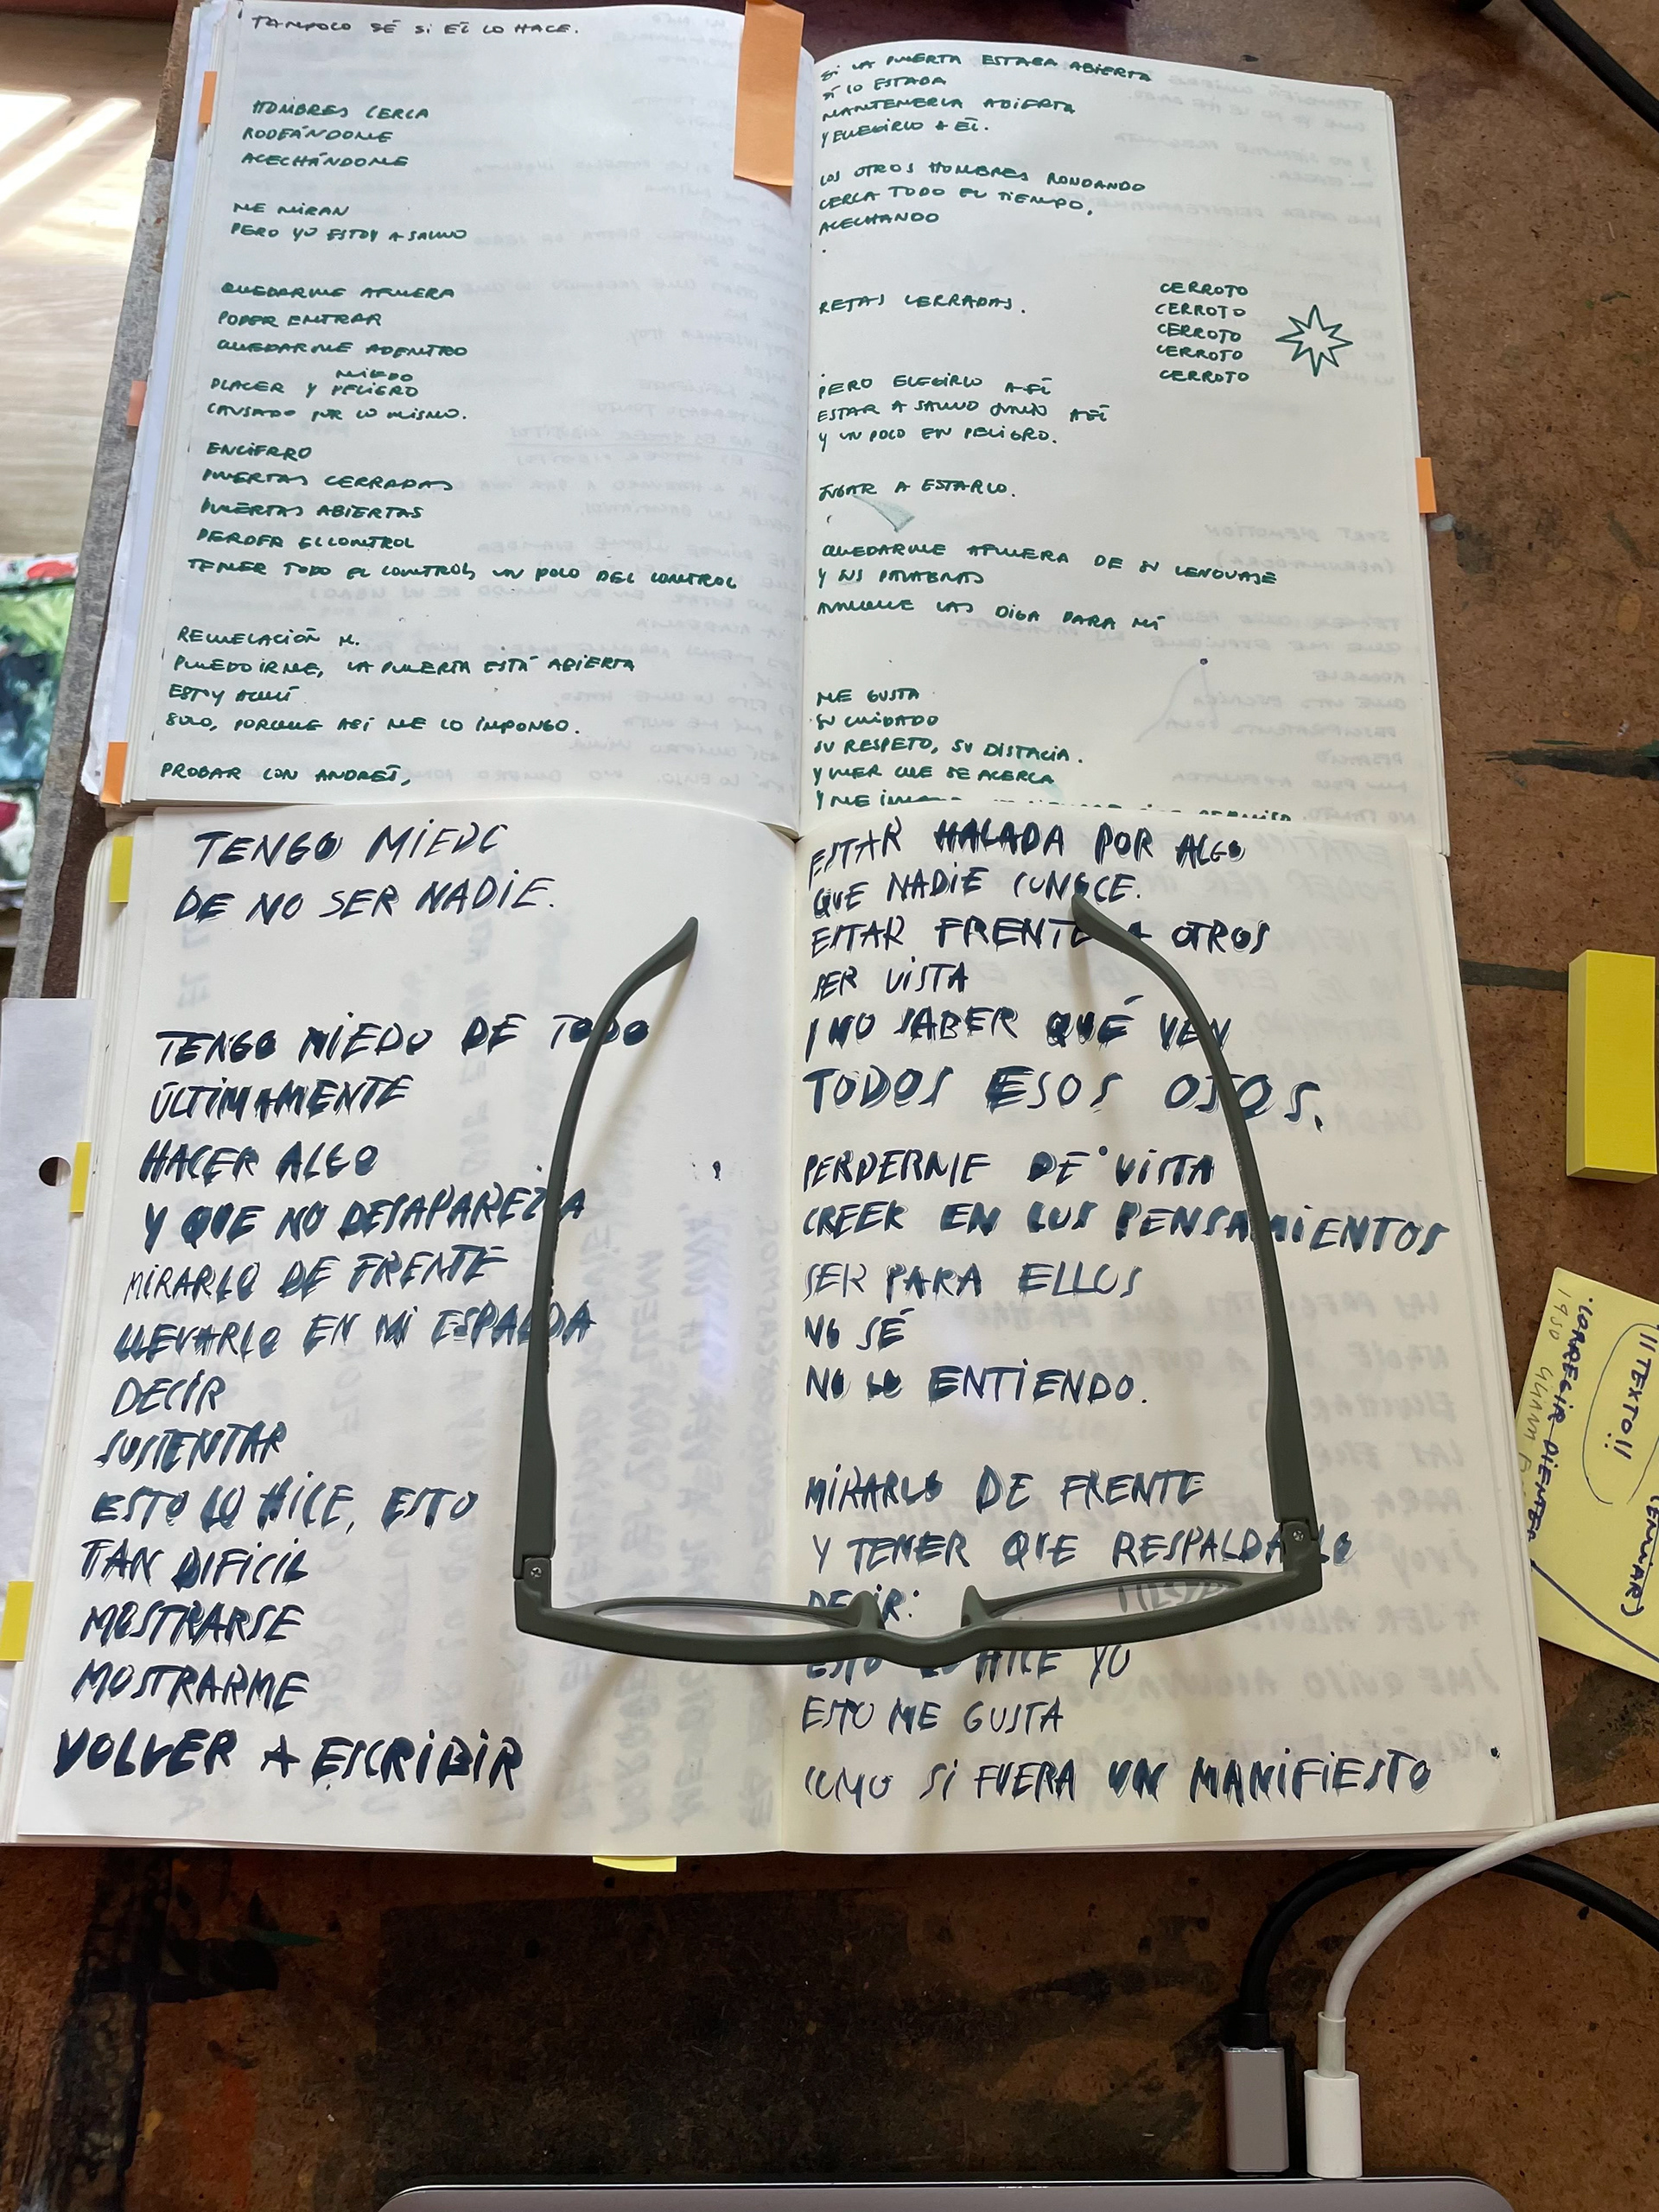 TAMPOCO SÉ SI ÉL LO HACE.
HOMBRES CERCA
RODEÁNDOME
ACECHÁNDOME
ME MIRAN
PERO YO ESTOY A SALVO
QUEDARME AFUERA
PODER ENTRAR
QUEDARME ADENTRO
MIEDO
PLACER Y PELIGRO
CAUSADO POR LO MISMO.
ENCIERRO
PUERTAS CERRADAS
PUERTAS ABIERTAS
PERDER EL CONTROL
TENER TODO EL CONTROL, UN POCO DEL CONTROL
REVELACIÓN M.
PUEDO IRME, LA PUERTA ESTÁ ABIERTA
ESTOY AQUÍ
SOLO, PORQUE ASÍ ME LO IMPONGO.
PROBAR CON ANDRÉS,
SI LA PUERTA ESTABA ABIERTA
SÍ LO ESTABA
MANTENERLA ABIERTA
Y ELEGIRLO A ÉL.
LOS OTROS HOMBRES RONDANDO
CERCA TODO EL TIEMPO,
ACECHANDO
REJAS CERRADAS.
CERROTO
CERROTO
CERROTO
CERROTO
CERROTO
PERO ELEGIRLO A ÉL
ESTAR A SALVO JUNTO A ÉL
Y UN POCO EN PELIGRO.
JUGAR A ESTARLO.
QUEDARME AFUERA DE SU LENGUAJE
Y SUS PALABRAS
AUNQUE LAS DIGA PARA MÍ
ME GUSTA
SU CUIDADO
SU RESPETO, SU DISTACIA.
Y VER QUE SE ACERCA
Y ME
TENGO MIEDO
DE NO SER NADIE.
TENGO MIEDO DE TODO
ÚLTIMAMENTE
HACER ALGO
Y QUE NO DESAPAREZCA
MIRARLO DE FRENTE
LLEVARLO EN MI ESPALDA
DECIR
SUSTENTAR
ESTO LO HICE, ESTO
TAN DIFICIL
MOSTRARSE
MOSTRARME
VOLVER A ESCRIBIR
ESTAR HALADA POR ALGO
QUE NADIE CONOCE.
ESTAR FRENTE A OTROS
SER VISTA
Y NO SABER QUÉ VEN
TODOS ESOS OJOS.
PERDERME DE VISTA
CREER EN LOS PENSAMIENTOS
SER PARA ELLOS
NO SÉ
NO LO ENTIENDO.
MIRARLO DE FRENTE
Y TENER QUE RESPALDARLO
DECIR:
ESTO LO HICE YO
ESTO ME GUSTA
COMO SI FUERA UN MANIFIESTO
!!TEXTO!!
(TERMINAR)
·CORREGIR DIENTES
1950